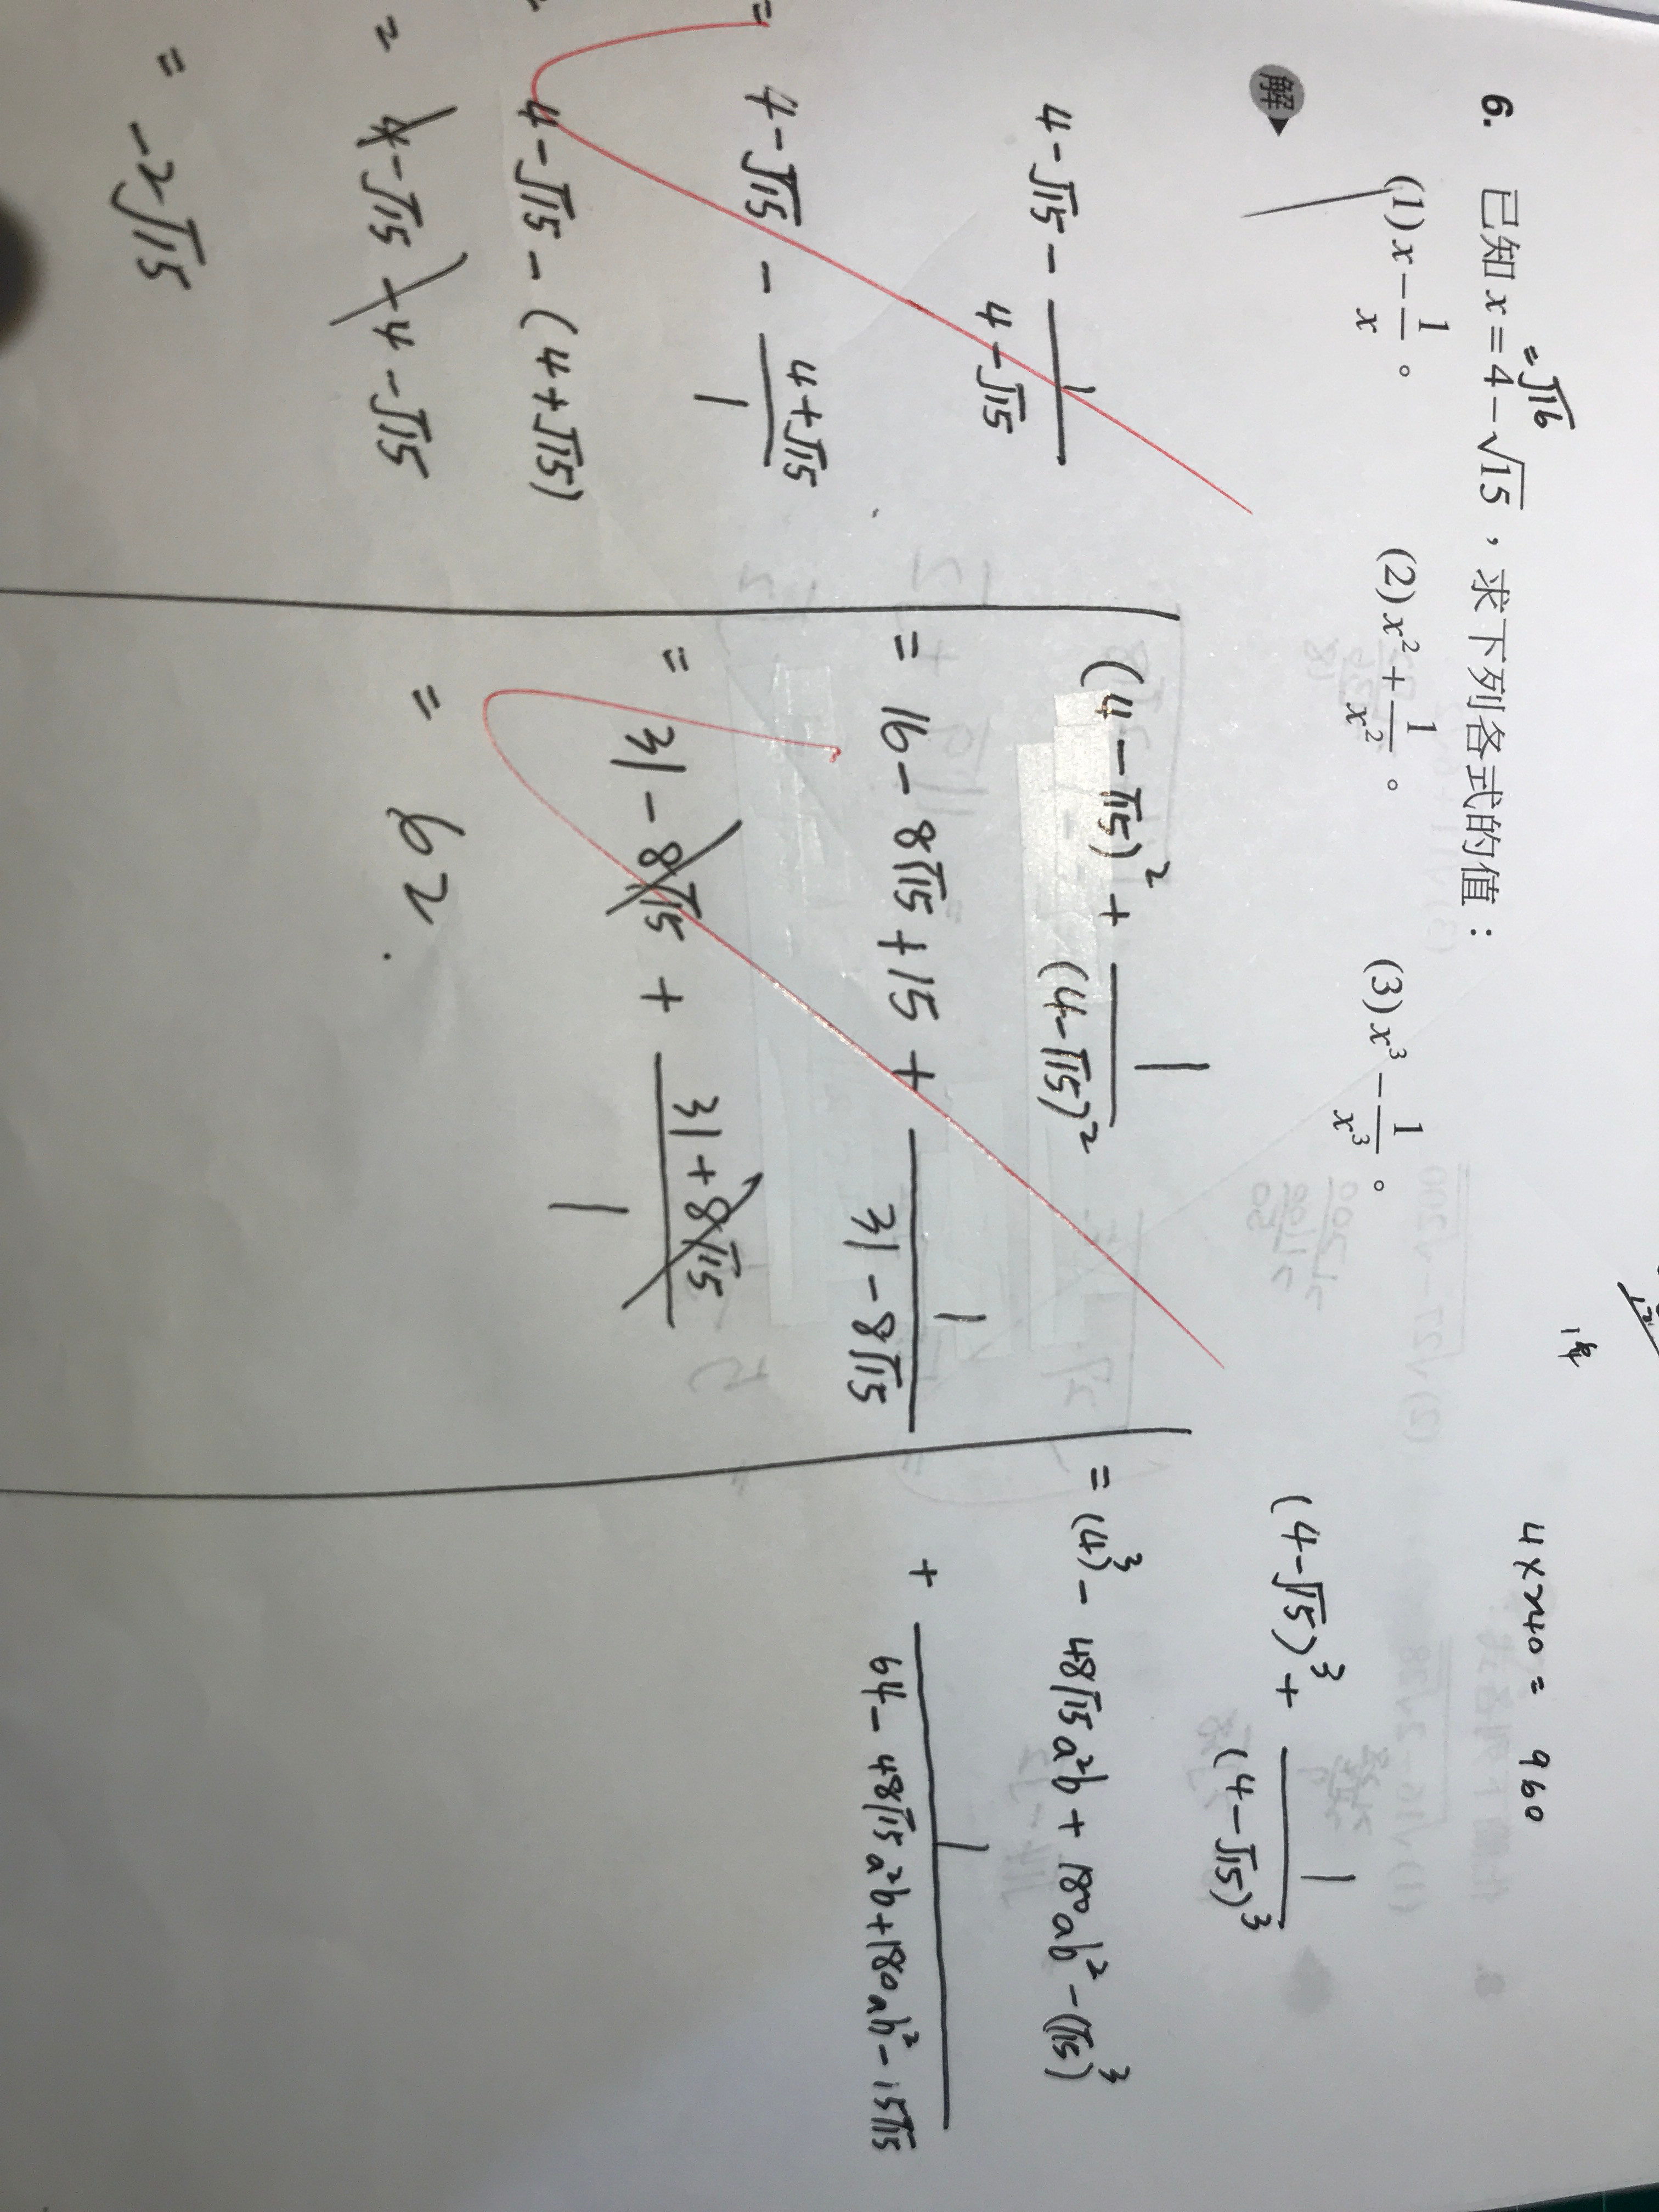 4×240 = 960
= √16
6. 已知 x = 4 − √15，求下列各式的值：
(1) x − 1/x。 (2) x² + 1/x²。 (3) x³ − 1/x³。
解
4 − √15 − 1/(4 − √15)
= 4 − √15 − (4 + √15)/1
= 4 − √15 − (4 + √15)
= 4 − √15 − 4 − √15
= −2√15
(4 − √15)² + 1/(4 − √15)²
= 16 − 8√15 + 15 + 1/(31 − 8√15)
= 31 − 8√15 + (31 + 8√15)/1
= 62.
(4 − √15)³ + 1/(4 − √15)³
= (4)³ − 48√15 a²b + 180ab² − (√15)³
+ 1/(64 − 48√15 a²b + 180ab² − 15√15)